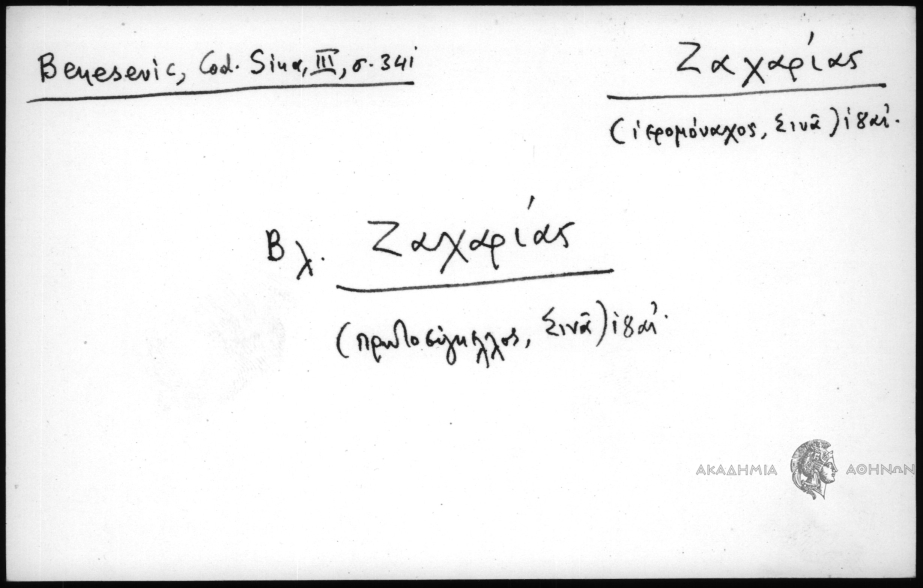 Benesevic, Cod. Sina, III, σ. 341
Ζαχαρίας
(ἱερομόναχος, Σινᾶ) ι8 αἰ.
Βλ. Ζαχαρίας
(πρωτοσύγκελλος, Σινᾶ) ι8 αἰ.
ΑΚΑΔΗΜΙΑ ΑΘΗΝΩΝ